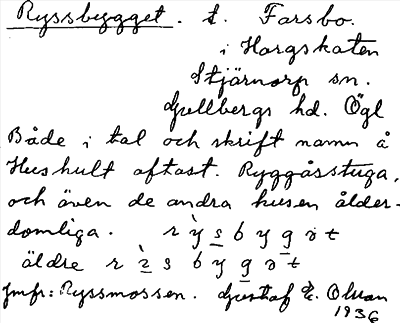 Ryssbygget. t. Farsbo.
i Horgskaten
Stjärnorp sn.
Gullbergs hd. Ögl
Både i tal och skrift namn å
Hushult oftast. Ryggåsstuga,
och även de andra husen ålder-
domliga. r y̍ s b y g ə t
äldre r s b y g ə t
Jmfr: Ryssmossen. Gustaf E. Olsson
1936